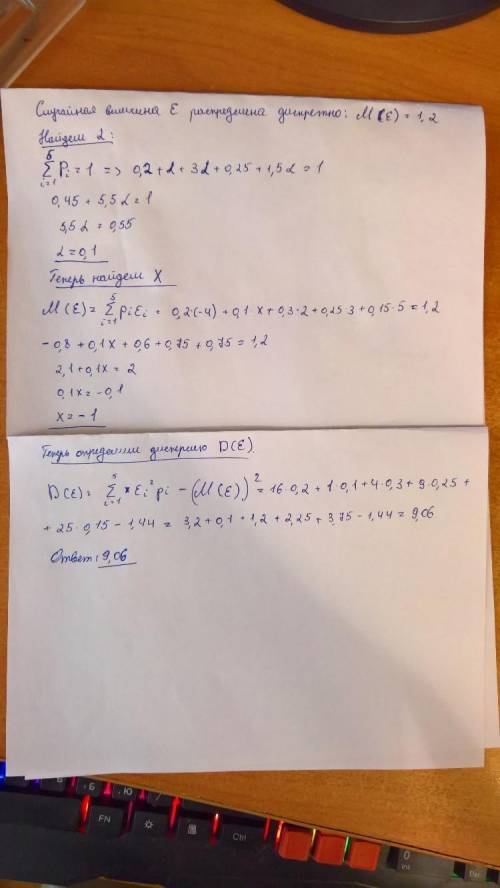 Случайная величина ε распределена дискретно: M(ε) = 1,2
Найдем α:
5
∑ Pi = 1 => 0,2 + α + 3α + 0,25 + 1,5α = 1
i=1
0,45 + 5,5α = 1
5,5α = 0,55
α = 0,1
Теперь найдем X
M(ε) = ∑ piεi = 0,2·(-4) + 0,1·X + 0,3·2 + 0,25·3 + 0,15·5 = 1,2
-0,8 + 0,1X + 0,6 + 0,75 + 0,75 = 1,2
2,1 + 0,1X = 2
0,1X = -0,1
X = -1
Теперь определим дисперсию D(ε).
D(ε) = ∑ εi² pi - (M(ε))² = 16·0,2 + 1·0,1 + 4·0,3 + 9·0,25 +
+ 25·0,15 - 1,44 = 3,2 + 0,1 + 1,2 + 2,25 + 3,75 - 1,44 = 9,06
Ответ: 9,06
Б Ю
FN Ctrl 0 Ins Del